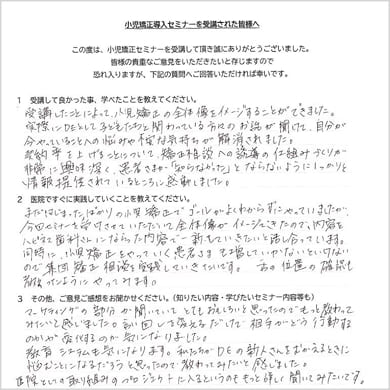 小児矯正導入セミナーを受講された皆様へ
この度は、小児矯正セミナーを受講して頂き誠にありがとうございました。
皆様の貴重なご意見をいただきたいと存じますので
恐れ入りますが、下記の質問へご回答いただければ幸いです。
1 受講して良かった事、学べたことを教えてください。
受講したことによって、小児矯正の全体像をイメージすることができました。
実際にDEとして子どもたちと関わっている方々のお話が聞けて、自分が
今やっていることへの悩みや不安な気持ちが解消されました。
契約率を上げることについて、矯正相談への誘導の仕組みづくりが
非常に興味深く、患者さまが「知らなかった」とならないようにしっかりと
情報提供されているところに感動しました。
2 医院ですぐに実践していくことを教えてください。
まだはじまったばかりの小児矯正でゴールがよくわからずにやっていましたが、
今回セミナーを受けさせていただいて全体像がイメージできたので、内容を
歯科さんにならった内容で一新もしていきたいと話し合っています。
同時に、小児矯正をやっていく患者さまも増していかないといけない
ので集団矯正相談を実践していきたいです。舌の位置の確認も
3 その他、ご意見ご感想をお聞かせください。(知りたい内容・学びたいセミナー内容等も)
マーケティングの部分が聞いていてとてもおもしろいと思ったのでもっと教わって
みたいと感じました。言い回しを変えるだけで相手がどう行動する
のかが変化するのか気になりました。
教育システムも気になります。私たちがDEの新人さんをむかえるときに
悩むことになるだろうと思ったので教わってみたいと感じました。
医院としての取り組みのプロジェクトに入るというのももっと詳しく聞いてみたいです。